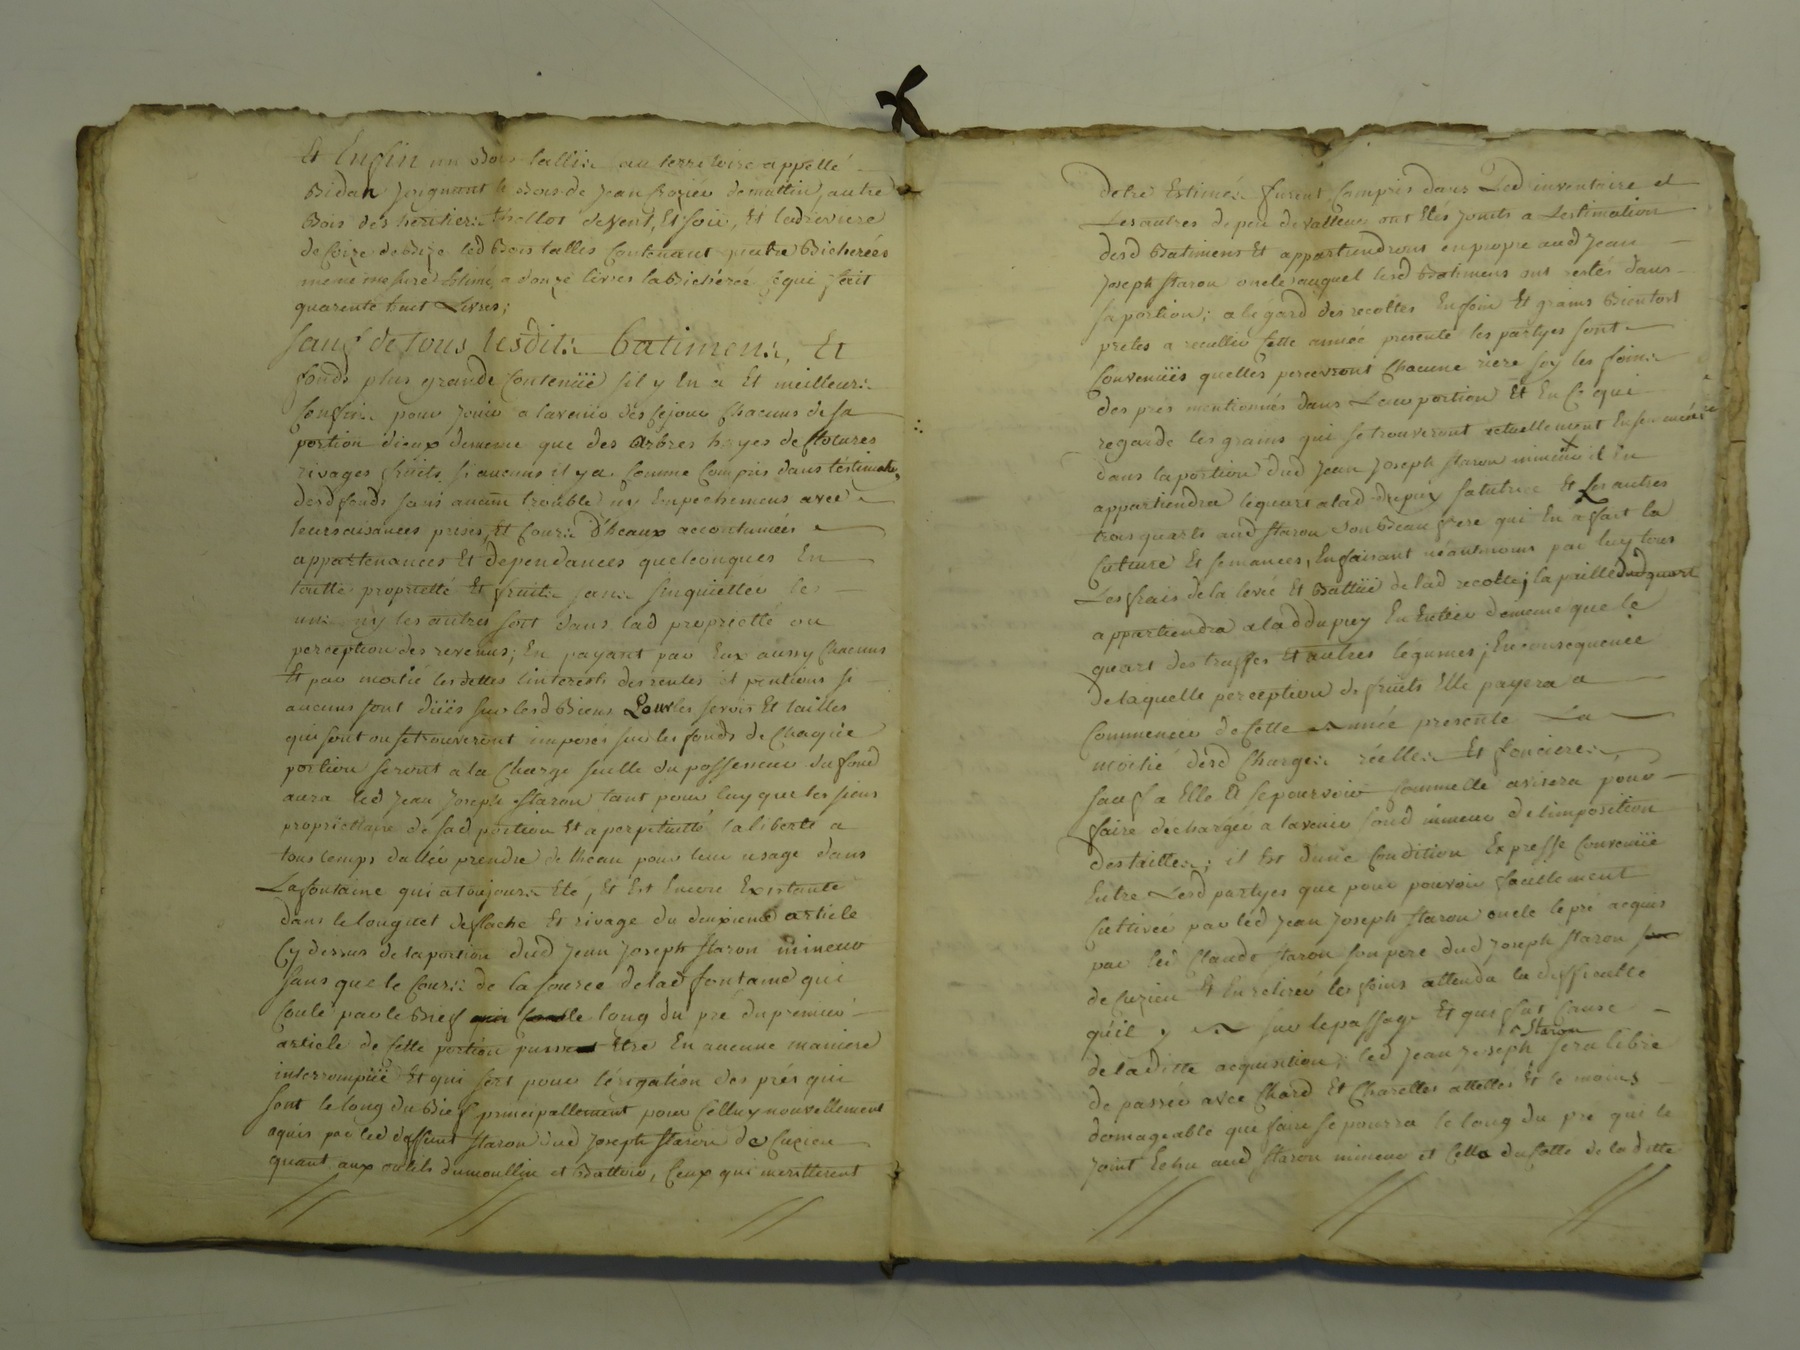 Et Enfin un Bois tallis au territoire appellé
Bidan joignant le Bois de Jean Crozier de matin, autre
Bois des heritiers thollot de vent, Et soir, Et ladreviere
de Coize de Bize led Bois tallis Contenant quatre Bicherées
meme mesure Estimé a douze livres la Bicherée Ce qui fait
quarente huit Livres;
sauf de tous lesdits batimens, Et
fonds plus grande Contenüe s'il y En a Et meilleurs
Confins pour jouir a lavenir des Cejour Chacuns de sa
portion d'ieux dememe que des Arbres hayes de Clotures
rivages fruits, si aucuns il y a Comme Compris dans léstimation
desd fonds sans aucun trouble ny Empechemens avec
leurs aisances prises, Et Cours D'heaux accoutumées
appartenances Et dependances quelconques En
toutte proprietté Et fruits sans s'inquietter les
uns ny les autres soit dans lad proprietté ou
perception des revenus; En payant par Eux aussy Chacuns
Et par moitié les dettes linterests des rentes et pentions si
aucuns sont düës sur lesd Biens Pour les servis Et tailles
qui sont ou se trouveront imposés sur les fonds de Chaqüe
portion seront a la Charge seulle du possesseur du fond
aura led Jean Joseph staron tant pour luy que les siens
propriettaire de sad portion Et a perpetuitté la liberté a
tous temps daller prendre de lheau pour leur usage dans
La fontaine qui a toujours Eté, Et Est Encore Existante
dans le longuet de flache Et rivage du deuxieme article
Cy dessus de la portion dud Jean Joseph staron mineur
sans que le Cours de la source de lad fontaine qui
Coule par le Bief le long du pré du premier
article de Cette portion puisse Etre En aucune maniere
interrompüe Et qui sert pour lérigation des prés qui
sont le long du Bief principallement pour Celluy nouvellement
aquis par led deffunt staron dud Joseph staron de Cuzieu
quant aux outils du moullin et Battoir, Ceux qui meritterent
detre Estimés furent Compris dans Led inventaire et
Les autres de peu de valleur ont Etés joints a Lestimation
desd Batimens Et appartiendront en propre aud Jean
Joseph staron oncle auquel lesd Batimens ont restés dans
sa portion; a légard des recoltes En foin Et grains Bientost
pretes a recullir Cette année presente les partyes sont
Convenües quelles percevront Chacune riere soy les foins
des prés mentionnés dans Leur portion Et En Ce qui
regarde les grains qui se trouveront actuellement Ensemencés
dans la portion dud Jean Joseph staron mineur il En
appartiendra le quart a lad Dupuy sa tutrice Et Les autres
trois quarts aud staron son Beau frere qui En a fait la
Culture Et semances, En faisant néantmoins par luy tous
Les frais de la levée Et Battüe de lad recolte; la paille dud quart
appartiendra a lad Dupuy En Entier demême que le
quart des truffes Et autres légumes; En consequence
de laquelle perception de früits Elle payera a
Commencer de Cette Année presente La
moitié desd Charges réelles Et foncieres
sauf a Elle Et se pourvoir Comme Elle avisera pour
faire decharger a lavenir sond mineur de limposition
des tailles; il Est d'une Condition Expresse Convenüe
Entre Lesd partyes que pour pouvoir facillement
Cultiver par led Jean Joseph staron oncle le pré acquis
par led Claude staron son pere dud Joseph staron
de Cuzieu Et En retirer les foins attendu la difficulté
qu'il y a sur le passage Et qui fut Cause
de laditte acquisition; led Jean Joseph staron sera libre
de passer avec Chard Et Charettes attellés Et le moins
domageable que faire se pourra le long du pré qui le
joint Echu aud staron mineur et Cella du Cotté de la ditte